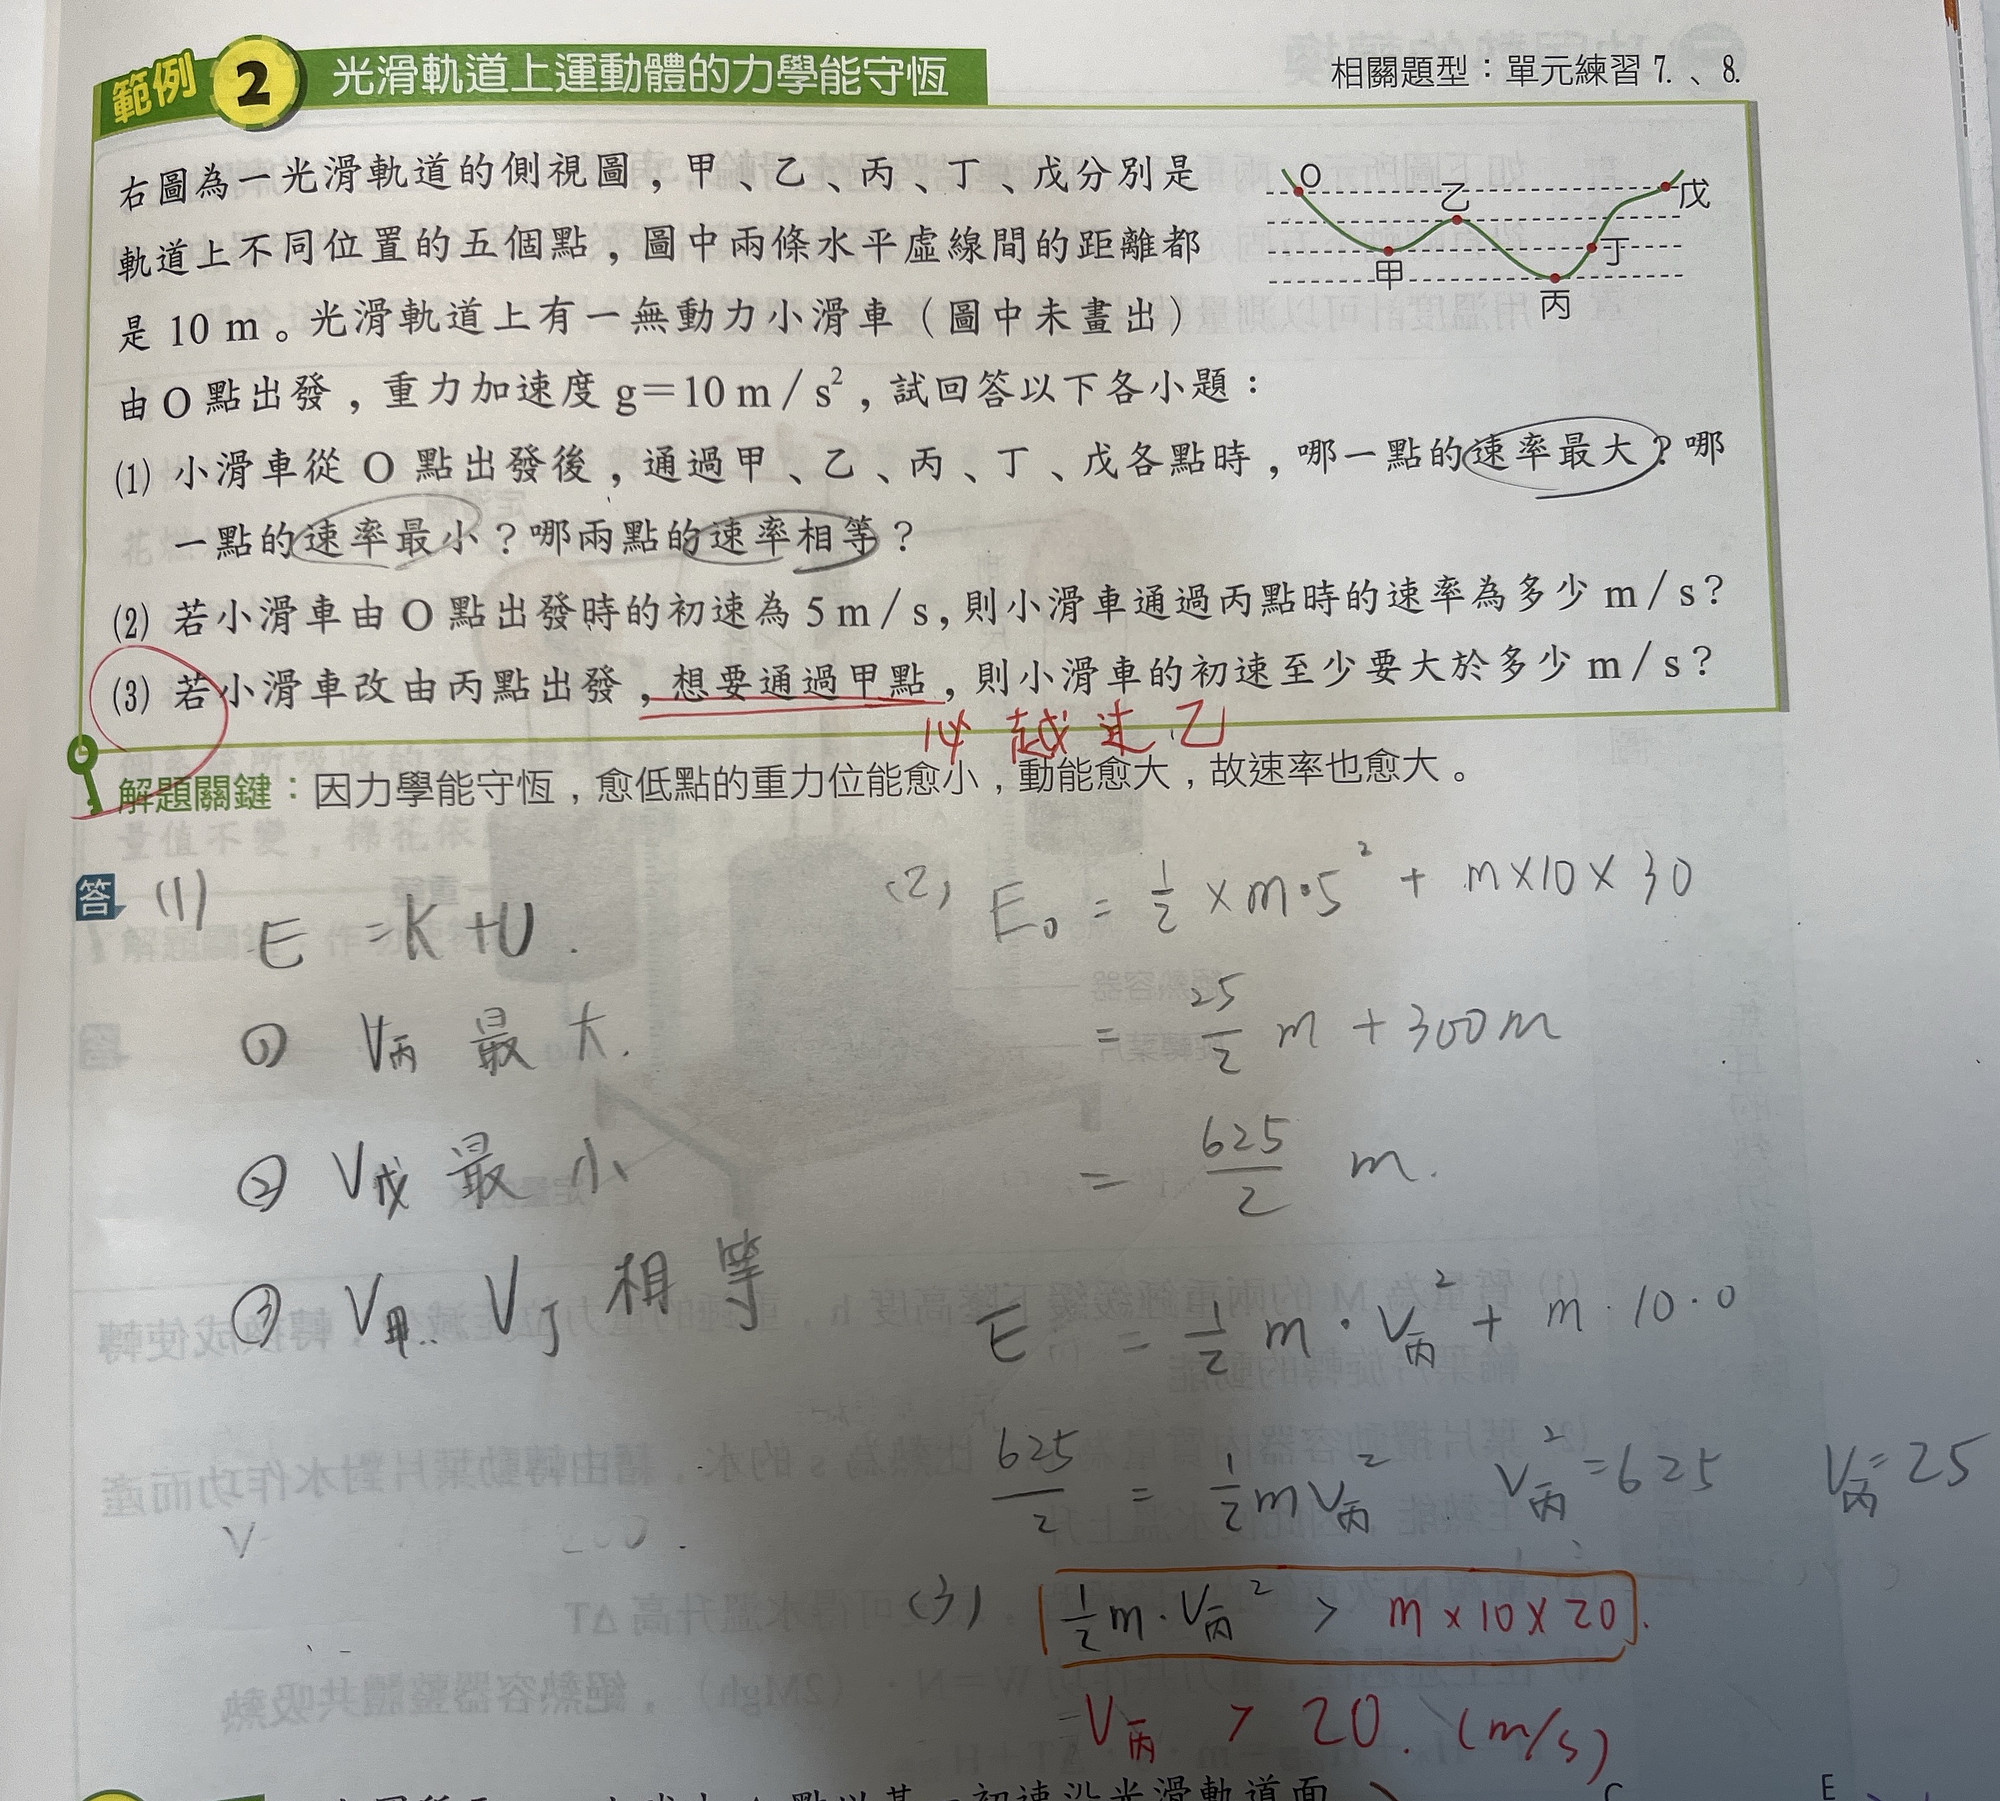 範例 2 光滑軌道上運動體的力學能守恆
相關題型：單元練習 7.、8.
右圖為一光滑軌道的側視圖，甲、乙、丙、丁、戊分別是
軌道上不同位置的五個點，圖中兩條水平虛線間的距離都
是 10 m。光滑軌道上有一無動力小滑車（圖中未畫出）
由 O 點出發，重力加速度 g＝10 m／s²，試回答以下各小題：
O
乙
戊
甲
丁
丙
(1) 小滑車從 O 點出發後，通過甲、乙、丙、丁、戊各點時，哪一點的速率最大？哪
一點的速率最小？哪兩點的速率相等？
(2) 若小滑車由 O 點出發時的初速為 5 m／s，則小滑車通過丙點時的速率為多少 m／s？
(3) 若小滑車改由丙點出發，想要通過甲點，則小滑車的初速至少要大於多少 m／s？
必越過乙
解題關鍵：因力學能守恆，愈低點的重力位能愈小，動能愈大，故速率也愈大。
答 (1)
E = K + U .
① V丙 最大.
② V戊 最小
③ V甲.. V丁 相等
(2) E₀ = 1/2 × m·5² + m×10×30
= 25/2 m + 300m
= 625/2 m.
E = 1/2 m · V丙² + m · 10 · 0
625/2 = 1/2 m V丙² V丙² = 625 V丙 = 25
(3) 1/2 m · V丙² > m × 10 × 20 .
V丙 > 20 . (m/s)